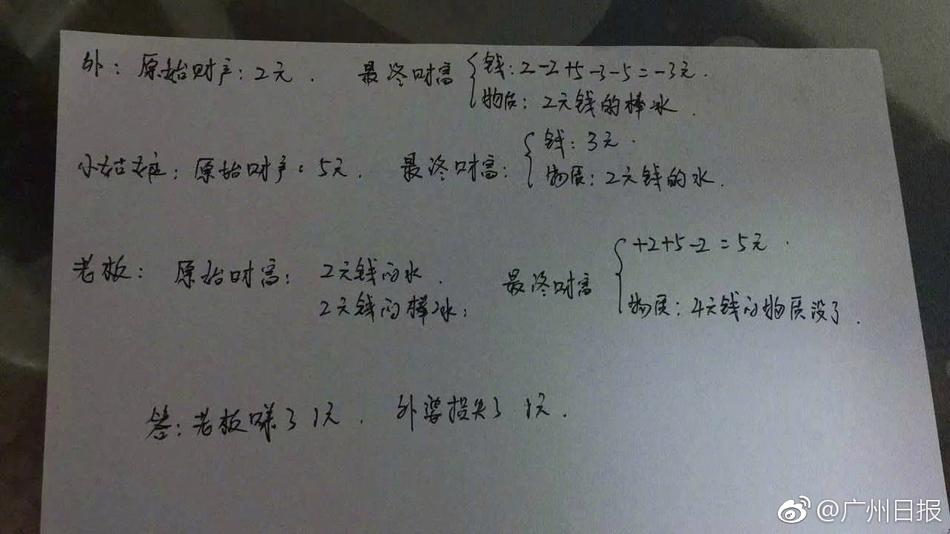 外：原始财产：2元． 最终财富 { 钱：2-2+5-3-5=-3元．
物质：2元钱的棒冰．
小姑娘：原始财产：5元． 最终财富： { 钱：3元．
物质：2元钱的水．
老板： 原始财富： 2元钱的水． 最终财富 { +2+5-2=5元．
2元钱的棒冰； 物质：4元钱的物质没了．
答：老板赚了1元． 外婆损失了1元．
@广州日报